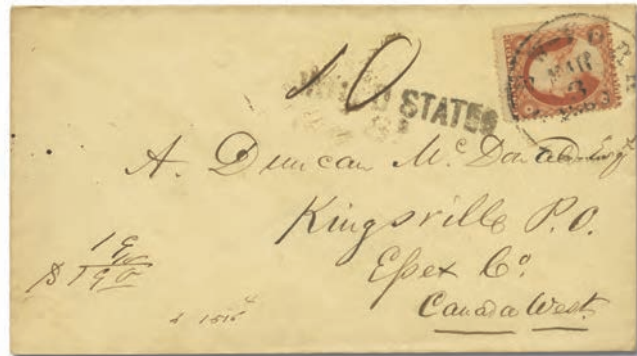 10
UNITED STATES
MAR
3
A. Duncan McDonald Esq
Kingsville P.O.
Essex Co.
Canada West